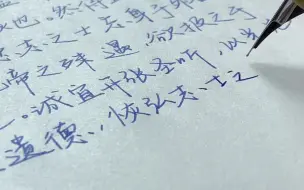 也。然侍
志之士忘身于
帝之殊遇,欲报之于
。诚宜开张圣听,以光
遗德,恢弘志士之